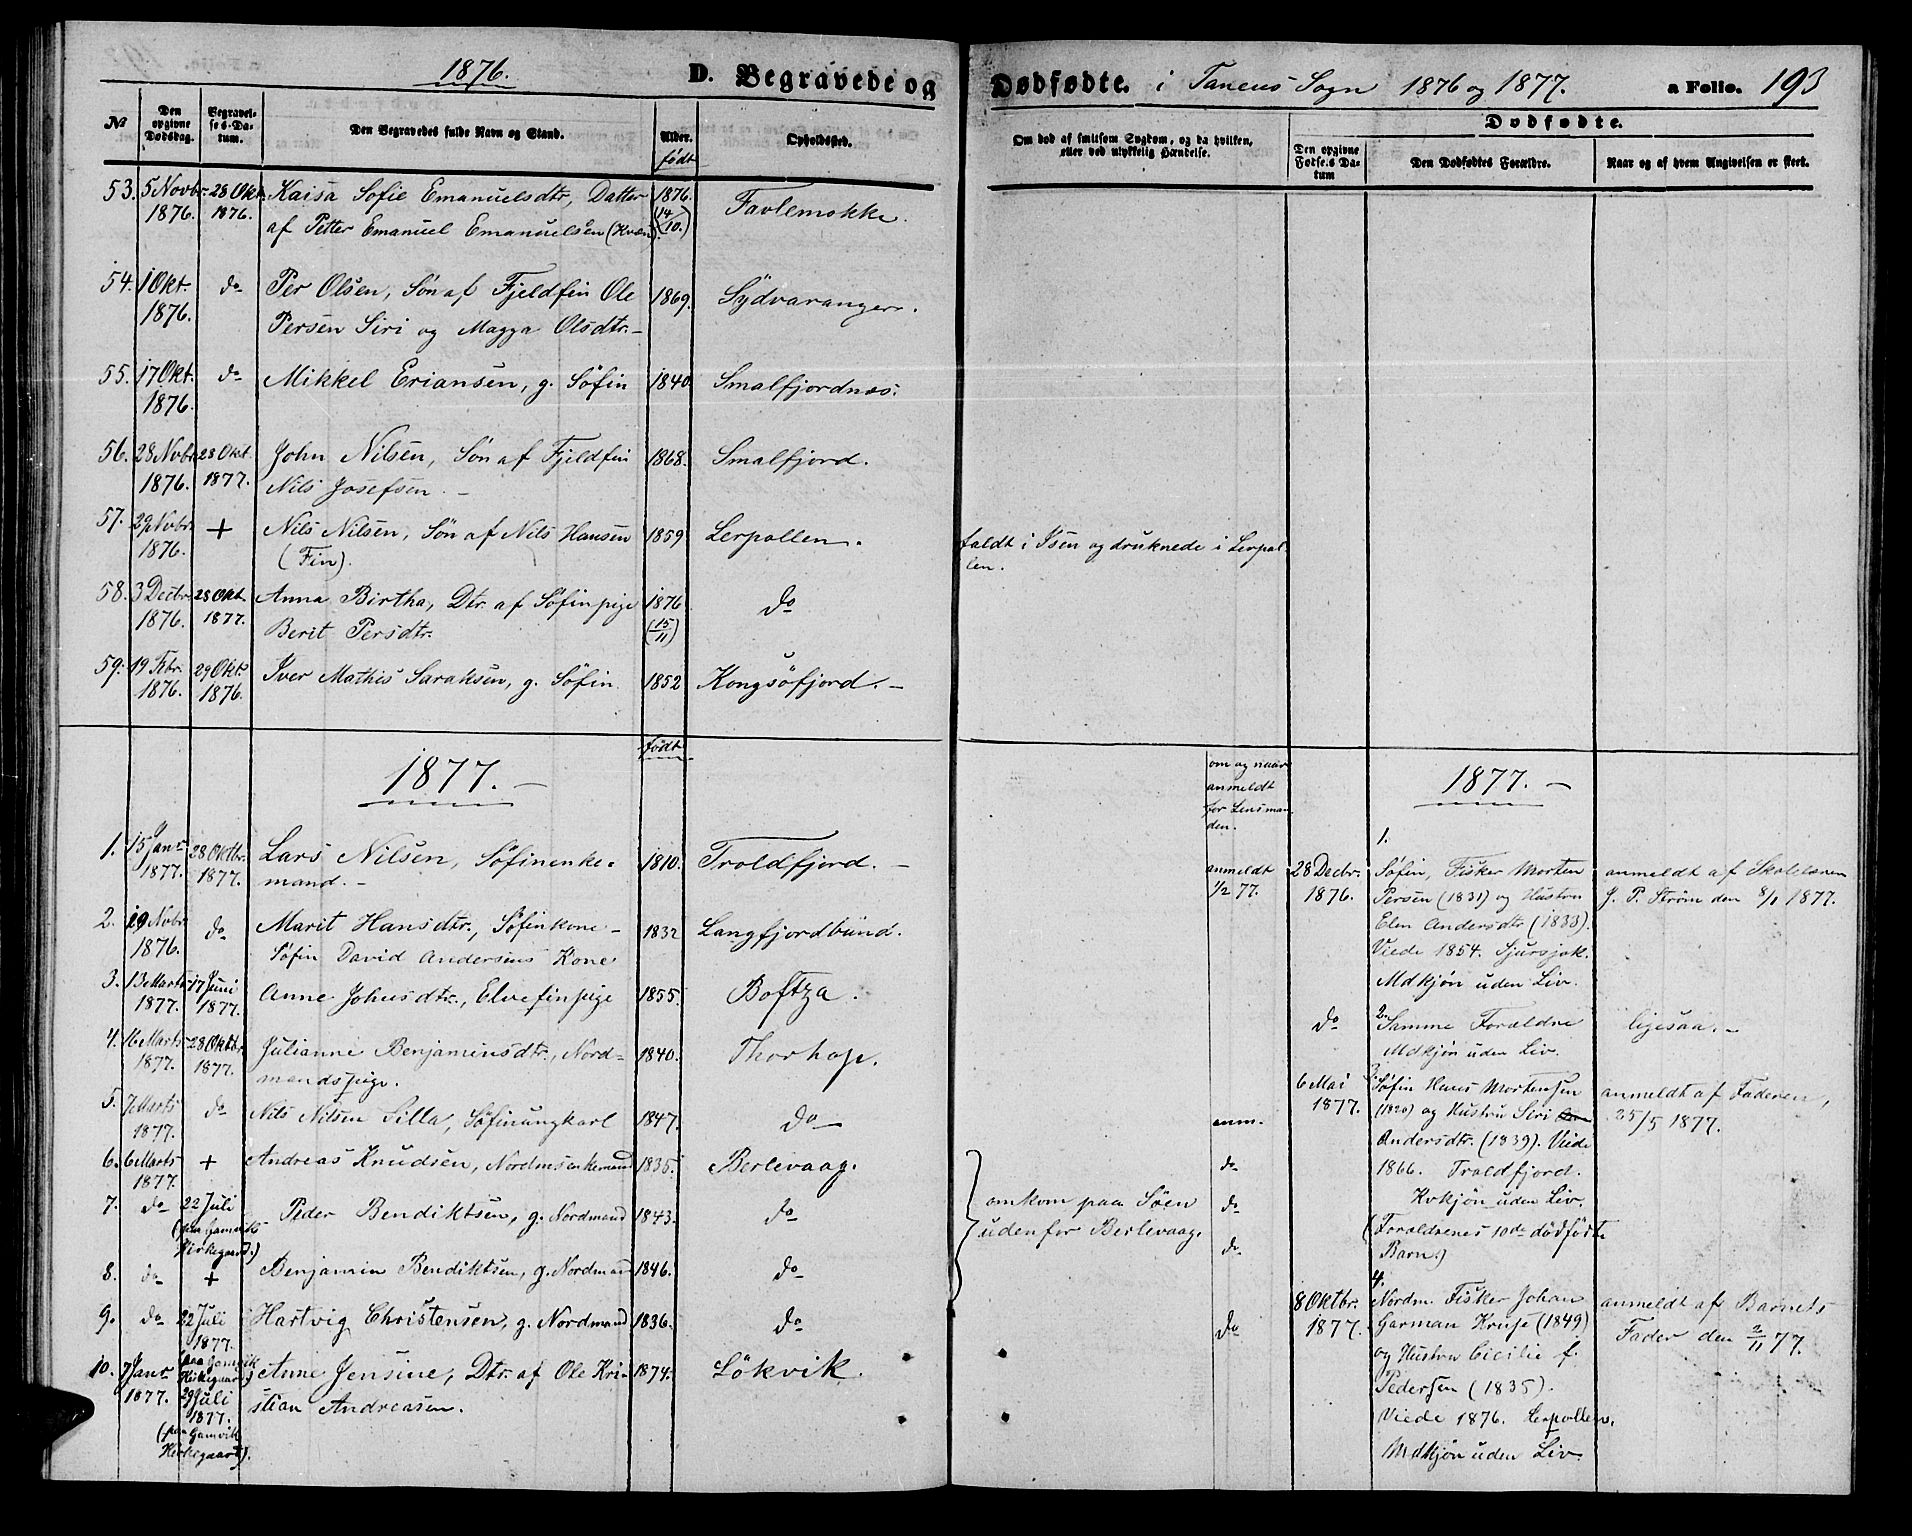 1876.
D. Begravede og Dødfødte. i Tanens Sogn 1876 og 1877. a Folio. 193
No
Den opgivne Dødsdag.
Begravelses-Datum.
Den Begravedes fulde Navn og Stand.
Alder. født
Opholdssted.
Om død af smitsom Sygdom, og da hvilken, eller ved ulykkelig Hændelse.
Dødfødte.
Den opgivne Fødsels Datum
Den Dødfødtes Forældre.
Naar og af hvem Angivelsen er skeet.
53. 5 Novbr. 28 Okt. Kaisa Sofie Emanuelsdtr, Datter 1876. Favlemokke.
1876. 1876. af Petter Emanuel Emanuelsen (Kvæn). (14/10.)
54. 1 Okt. do Per Olsen, Søn af Fjeldfin Ole 1869. Sydvaranger.
1876. Persen Siri og Magga Olsdtr. –
55. 17 Okt. do Mikkel Eriansen, g. Søfin 1840. Smalfjordnæs.
1876.
56. 28 Novbr. 28 Okt. John Nilsen, Søn af Fjeldfin 1868. Smalfjord.
1876. 1877. Nils Josefsen. –
57. 29 Novbr. + Nils Nilsen, Søn af Nils Hansen 1859 Lerpollen. faldt i Isen og druknede i Lerpol-
1876. (Fin). len.
58. 3 Decbr. 28 Okt. Anna Birtha, Dtr. af Søfinpige 1876 do
1876. 1877. Berit Persdtr. (15/11)
59. 19 Fbr. 29 Okt. Iver Mathis Saraksen, g. Søfin. 1852 Kongsöfjord. –
1876. 1876.
født
1877. –
om og naar
anmeldt
for Lensman
den.
1877. –
1. 15 Janr. 28 Oktbr. Lars Nilsen, Søfinenke- 1810. Troldfjord. –
1877. 1877. mand. –
2. 29 Novbr. do Marit Hansdtr., Søfinkone – 1832 Langfjordbund.
1876. Søfin David Andersens Kone
3. 13 Marts 17 Juni Anne Johnsdtr., Elvefinpige 1855. Boftza.
1877. 1877.
4. 16 Marts 28 Oktbr. Julianne Benjaminsdtr., Nord- 1840. Thorhop.
1877. 1877. mandspige.
5. 7 Marts do Nils Nilsen Silla, Søfinungkarl 1847. do
1877.
6. 6 Marts + Andreas Knudsen, Nordmsenkemand 1835. Berlevaag.
1877.
7. do 22 Juli Peder Bendiktsen, g. Nordmand 1843. do
(paa Gamviks
Kirkegaard.)
8. do + Benjamin Bendiktsen, g. Nordmand 1846. do
9. do 22 Juli Hartvig Christensen, g. Nordmand 1836. do
1877.
(paa Gamvik
Kirkegaard.)
10. 7 Janr. 29 Juli Anne Jensine, Dtr. af Ole Kri- 1874. Lökvik.
1877. 1877. stian Andreasen.
(paa Gamvik
Kirkegaard).
omkom paa Søen
udenfor Berlevaag.
1.
anmeldt 28 Decbr. Søfin, Fisker Morten anmeldt af Skolelærer
1/2 77. 1876. Persen (1831) og Hustru J. P. Strøm den 8/1 1877.
Elen Andersdtr (1833).
Viede 1854. Sjursjok.
Mdkjøn uden Liv.
do 2. Samme Forældre ligesaa. –
Mdkjøn uden Liv.
anm. 6 Mai 3. Søfin Hans Mortensen anmeldt af Faderen,
1877. (1820) og Hustru Siri 25/5 1877.
Andersdtr. (1839). Viede
do 1866. Troldfjord.
do Kvkjøn uden Liv.
do (Forældrenes 10de dødfødte
Barn.)
4.
do 8 Oktbr. Nordm. Fisker Johan anmeldt af Barnets
1877. Garman Kruse (1849) Fader den 2/11 77.
og Hustru Cicilie f.
Pedersen (1835).
Viede 1876. Lerpollen.
Mdkjøn uden Liv.